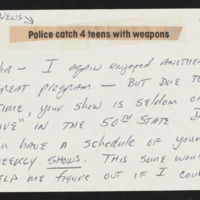 NEWS
Police catch 4 teens with weapons
I AGAIN ENJOYED ANOTHER
GREAT PROGRAM — BUT DUE TO
TIME, YOUR SHOW IS SELDOM ON
"LIVE" IN THE 50TH STATE.
YOU HAVE A SCHEDULE OF YOUR
WEEKLY SHOWS. THIS SOME WOULD
HELP ME FIGURE OUT IF I COULD